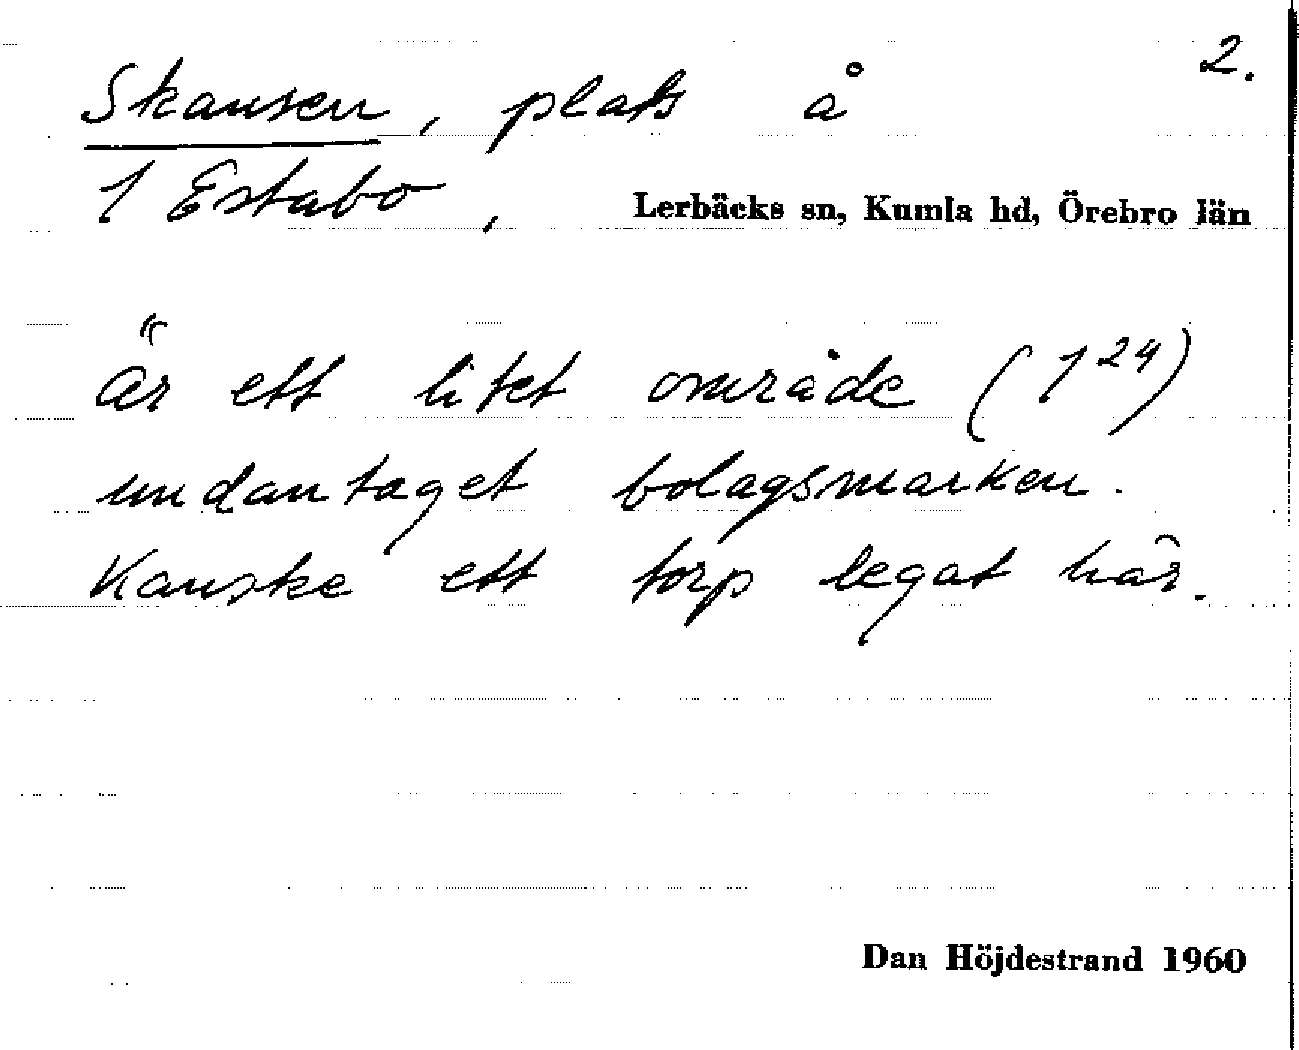 2.
Skansen, plats å
1 Estabo, Lerbäcks sn, Kumla hd, Örebro län
är ett litet område (1²⁴)
undantaget bolagsmarken.
Kanske ett torp legat här.
Dan Höjdestrand 1960